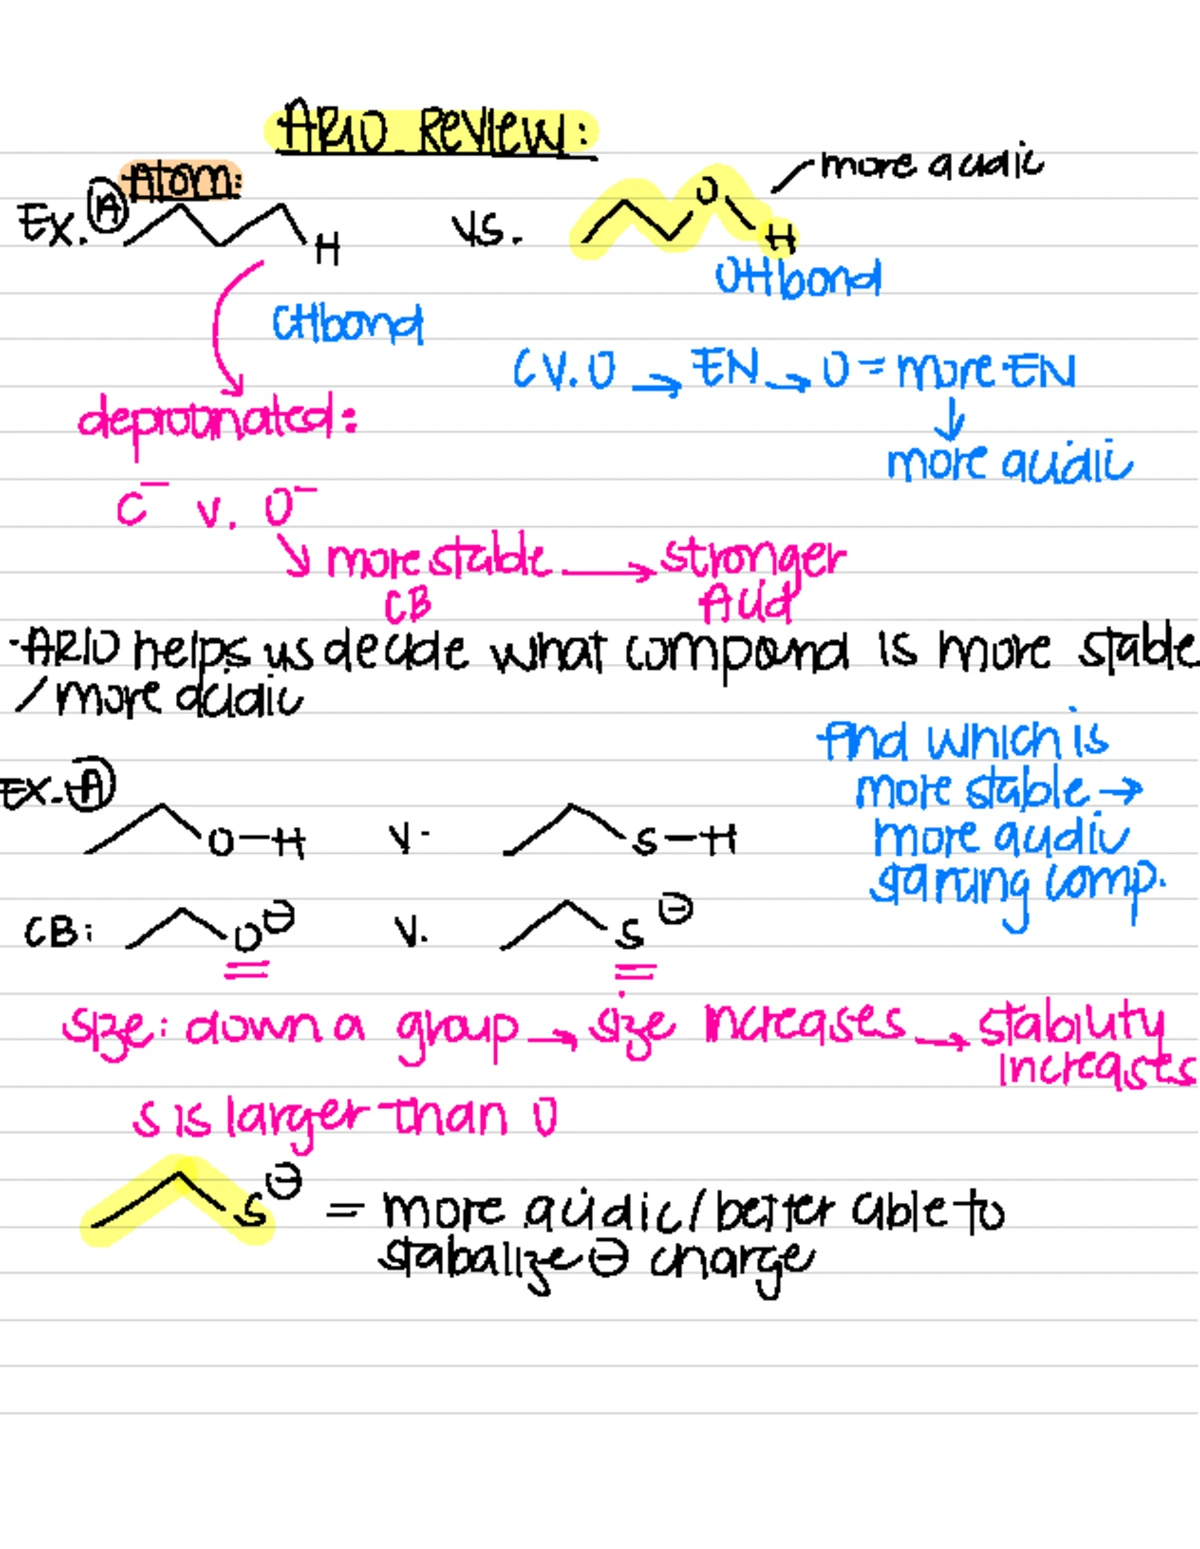 ARIO Review:
Atom:
more acidic
Ex. A
H
vs.
O
H
OH bond
CH bond
C v. O → EN → O = more EN
↓
more acidic
deprotinated:
C⁻ v. O⁻
↘ more stable → stronger
CB Acid
-ARIO helps us decide what compound is more stable
/more acidic
find which is
more stable →
more acidic
starting comp.
EX. A
O-H v. S-H
CB: O⊖ v. S⊖
size: down a group → size increases → stability
increases
S is larger than O
S⊖ = more acidic/better able to
stabalize ⊖ charge